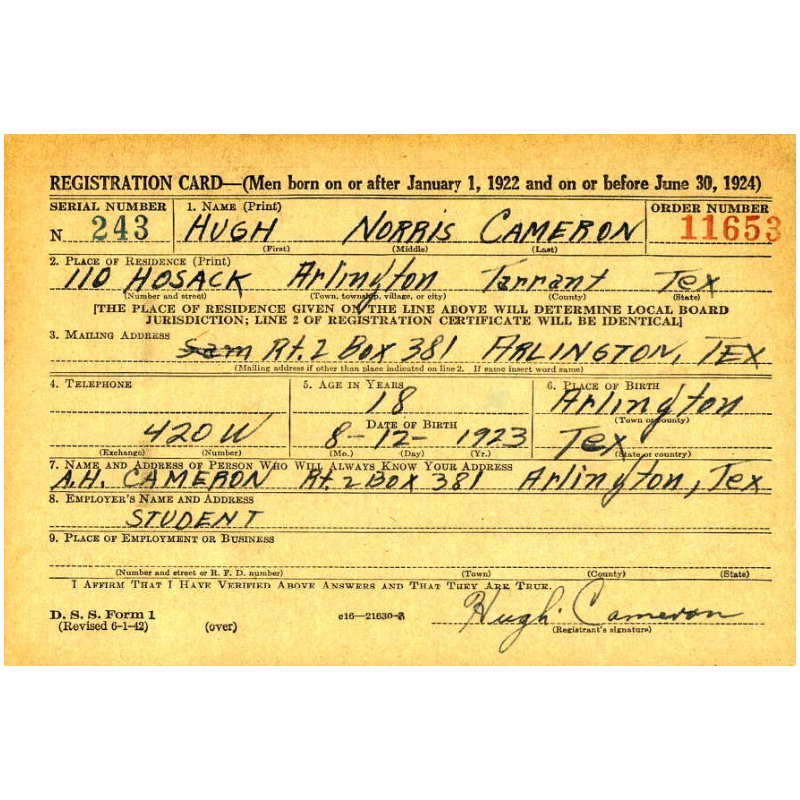 REGISTRATION CARD—(Men born on or after January 1, 1922 and on or before June 30, 1924)
SERIAL NUMBER 1. NAME (Print) ORDER NUMBER
N 243 HUGH NORRIS CAMERON 11653
(First) (Middle) (Last)
2. PLACE OF RESIDENCE (Print)
110 HOSACK Arlington Tarrant Tex
(Number and street) (Town, township, village, or city) (County) (State)
[THE PLACE OF RESIDENCE GIVEN ON THE LINE ABOVE WILL DETERMINE LOCAL BOARD
JURISDICTION; LINE 2 OF REGISTRATION CERTIFICATE WILL BE IDENTICAL]
3. MAILING ADDRESS
Sam Rt. 2 Box 381 ARLINGTON, TEX
(Mailing address if other than place indicated on line 2. If same insert word same)
4. TELEPHONE 5. AGE IN YEARS 6. PLACE OF BIRTH
18 Arlington
DATE OF BIRTH (Town or county)
420W 8-12- 1923 Tex
(Exchange) (Number) (Mo.) (Day) (Yr.) (State or country)
7. NAME AND ADDRESS OF PERSON WHO WILL ALWAYS KNOW YOUR ADDRESS
A.H. CAMERON Rt. 2 Box 381 Arlington, Tex
8. EMPLOYER'S NAME AND ADDRESS
STUDENT
9. PLACE OF EMPLOYMENT OR BUSINESS
(Number and street or R. F. D. number) (Town) (County) (State)
I AFFIRM THAT I HAVE VERIFIED ABOVE ANSWERS AND THAT THEY ARE TRUE.
D. S. S. Form 1 c16—21630-2 Hugh Cameron
(Revised 6-1-42) (over) (Registrant's signature)